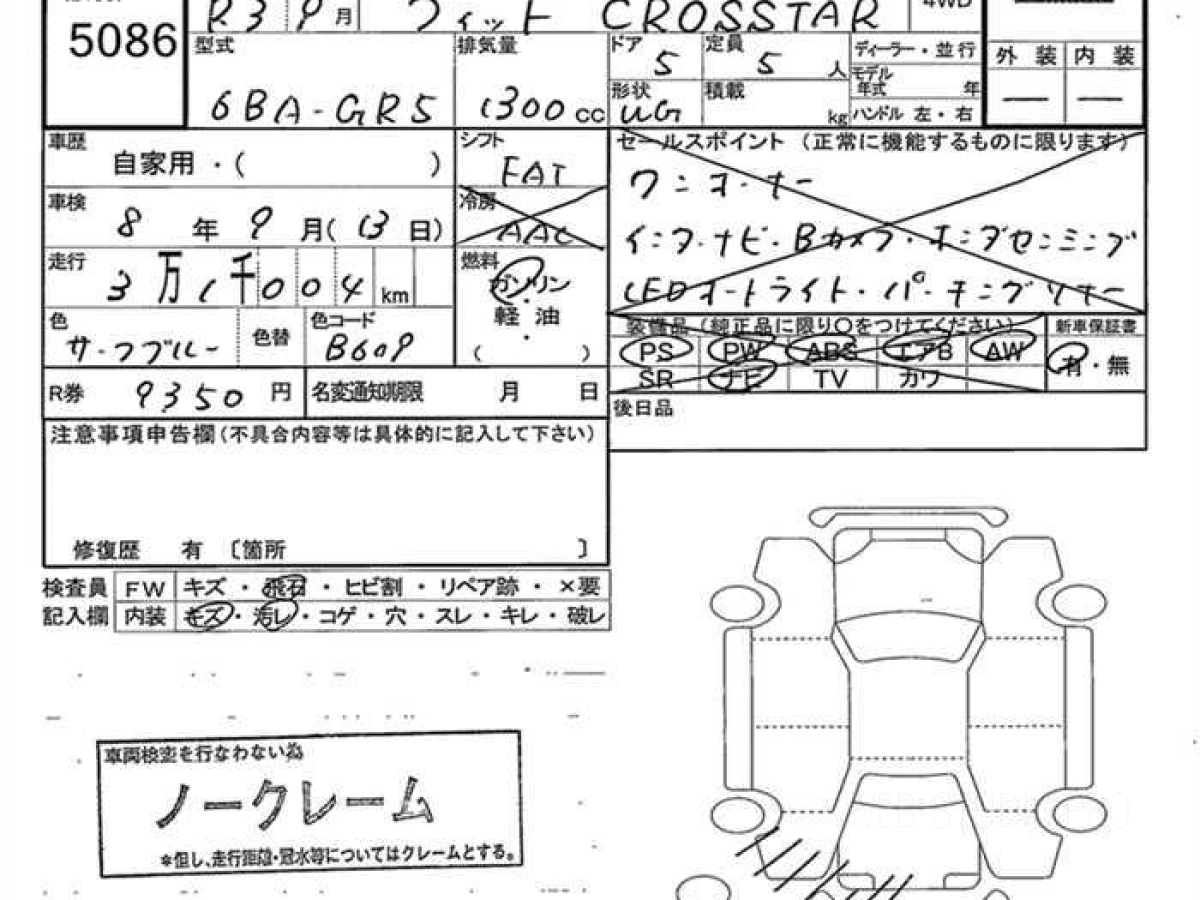 R3 9月 フィット CROSSTAR 4WD
5086
型式 排気量 ドア 5 定員 5 人 ディーラー・並行 外装 内装
モデル年式 年
6BA-GR5 1300 cc 形状 UG 積載 kg ハンドル 左・右 — —
車歴 自家用・( )
シフト FAT
セールスポイント (正常に機能するものに限ります)
ワンオーナー
車検 8年 9月(13日)
冷房 AAC
インターナビ・Bカメラ・ホンダセンシング
走行 3万1千004km
燃料 ガソリン・軽油・( )
LEDオートライト・パーキングソナー
色 サーフブルー 色替 色コード B609
装備品 (純正品に限り○をつけてください) 新車保証書
PS PW ABS エアB AW 有・無
SR ナビ TV カワ
R券 9350円 名変通知期限 月 日
後日品
注意事項申告欄(不具合内容等は具体的に記入して下さい)
修復歴 有 〔箇所 〕
検査員 FW キズ・飛石・ヒビ割・リペア跡・×要
記入欄 内装 キズ・汚レ・コゲ・穴・スレ・キレ・破レ
車両検査を行なわない為
ノークレーム
*但し、走行距離・冠水等についてはクレームとする。